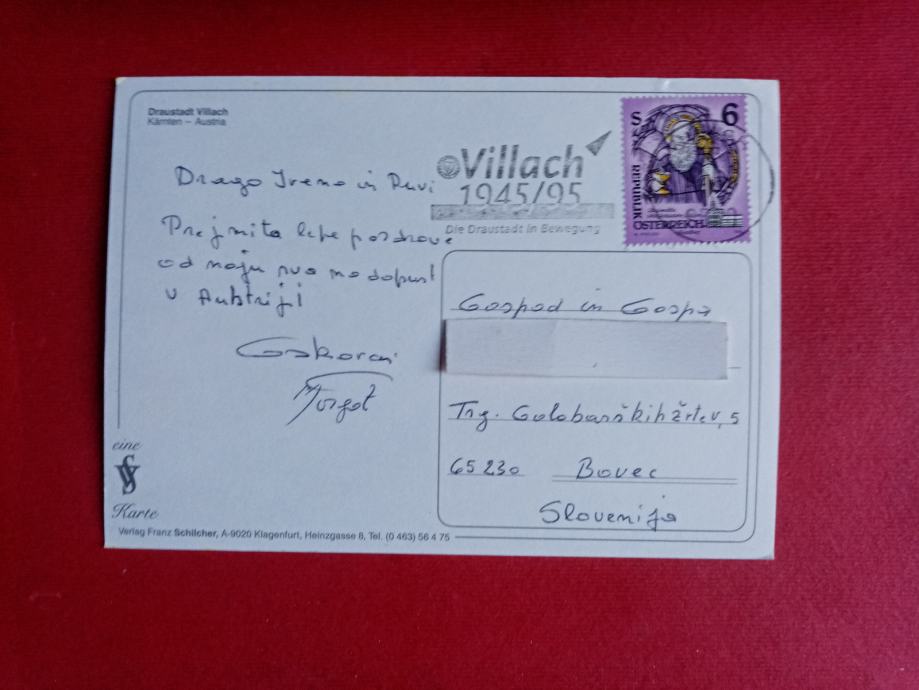 Draustadt Villach
Kärnten – Austria
Villach
1945/95
Die Draustadt in Bewegung
S 6
REPUBLIK
ÖSTERREICH
Drago Irena in
Prejmita lepe pozdrave
od naju na dopust
v Avstriji
Gospod in Gospa
Trg. Golobarskih žrtev, 5
65230 Bovec
Slovenija
eine
Karte
Verlag Franz Schilcher, A-9020 Klagenfurt, Heinzgasse 8, Tel. (0 463) 56 4 75